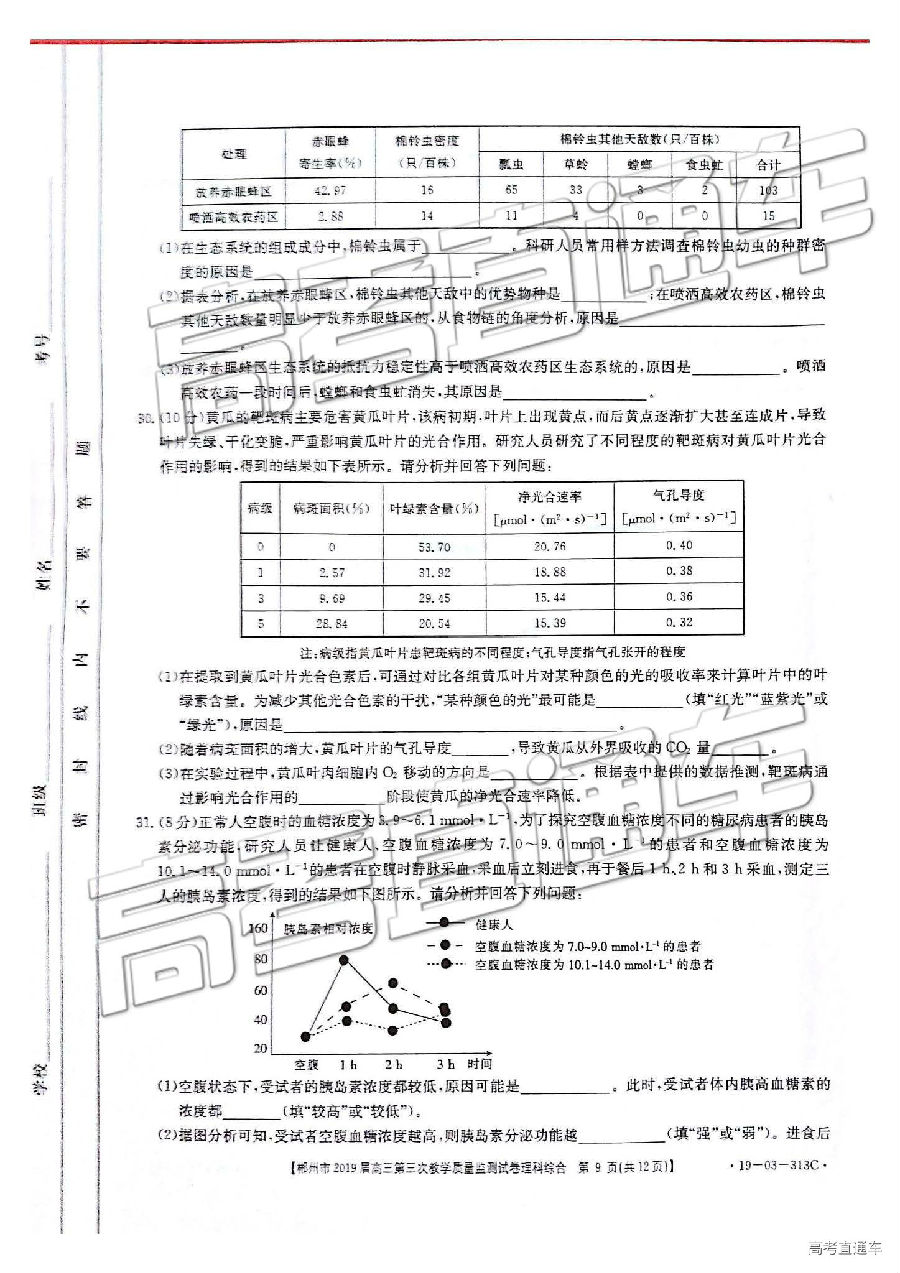 处理 赤眼蜂寄生率(%) 棉铃虫密度(只/百株) 棉铃虫其他天敌数(只/百株)
瓢虫 草蛉 螳螂 食虫虻 合计
放养赤眼蜂区 42.97 16 65 33 3 2 103
喷洒高效农药区 2.88 14 11 4 0 0 15
(1)在生态系统的组成成分中,棉铃虫属于________。科研人员常用样方法调查棉铃虫幼虫的种群密
度的原因是________。
(2)据表分析,在放养赤眼蜂区,棉铃虫其他天敌中的优势物种是________;在喷洒高效农药区,棉铃虫
其他天敌数量明显少于放养赤眼蜂区的,从食物链的角度分析,原因是________
________。
(3)放养赤眼蜂区生态系统的抵抗力稳定性高于喷洒高效农药区生态系统的,原因是________。喷洒
高效农药一段时间后,螳螂和食虫虻消失,其原因是________。
30.(10分)黄瓜的靶斑病主要危害黄瓜叶片,该病初期,叶片上出现黄点,而后黄点逐渐扩大甚至连成片,导致
叶片失绿、干化变脆,严重影响黄瓜叶片的光合作用。研究人员研究了不同程度的靶斑病对黄瓜叶片光合
作用的影响,得到的结果如下表所示。请分析并回答下列问题:
病级 病斑面积(%) 叶绿素含量(%) 净光合速率[μmol·(m²·s)⁻¹] 气孔导度[μmol·(m²·s)⁻¹]
0 0 53.70 20.76 0.40
1 2.57 31.92 18.88 0.38
3 9.69 29.45 15.44 0.36
5 28.84 20.54 15.39 0.32
注:病级指黄瓜叶片患靶斑病的不同程度;气孔导度指气孔张开的程度
(1)在提取到黄瓜叶片光合色素后,可通过对比各组黄瓜叶片对某种颜色的光的吸收率来计算叶片中的叶
绿素含量。为减少其他光合色素的干扰,“某种颜色的光”最可能是________(填“红光”“蓝紫光”或
“绿光”),原因是________。
(2)随着病斑面积的增大,黄瓜叶片的气孔导度________,导致黄瓜从外界吸收的CO₂量________。
(3)在实验过程中,黄瓜叶肉细胞内O₂移动的方向是________。根据表中提供的数据推测,靶斑病通
过影响光合作用的________阶段使黄瓜的净光合速率降低。
31.(8分)正常人空腹时的血糖浓度为3.9~6.1 mmol·L⁻¹,为了探究空腹血糖浓度不同的糖尿病患者的胰岛
素分泌功能,研究人员让健康人、空腹血糖浓度为7.0~9.0 mmol·L⁻¹的患者和空腹血糖浓度为
10.1~14.0 mmol·L⁻¹的患者在空腹时静脉采血,采血后立刻进食,再于餐后1 h、2 h和3 h采血,测定三
人的胰岛素浓度,得到的结果如下图所示。请分析并回答下列问题:
胰岛素相对浓度
160
80
60
40
20
空腹 1 h 2 h 3 h 时间
健康人
空腹血糖浓度为7.0~9.0 mmol·L⁻¹的患者
空腹血糖浓度为10.1~14.0 mmol·L⁻¹的患者
(1)空腹状态下,受试者的胰岛素浓度都较低,原因可能是________。此时,受试者体内胰高血糖素的
浓度都________(填“较高”或“较低”)。
(2)据图分析可知,受试者空腹血糖浓度越高,则胰岛素分泌功能越________(填“强”或“弱”)。进食后
【郴州市2019届高三第三次教学质量监测试卷理科综合 第9页(共12页)】 ·19-03-313C·
学校
班级
姓名
考号
密封线内不要答题
高考直通车
高考直通车
高考直通车